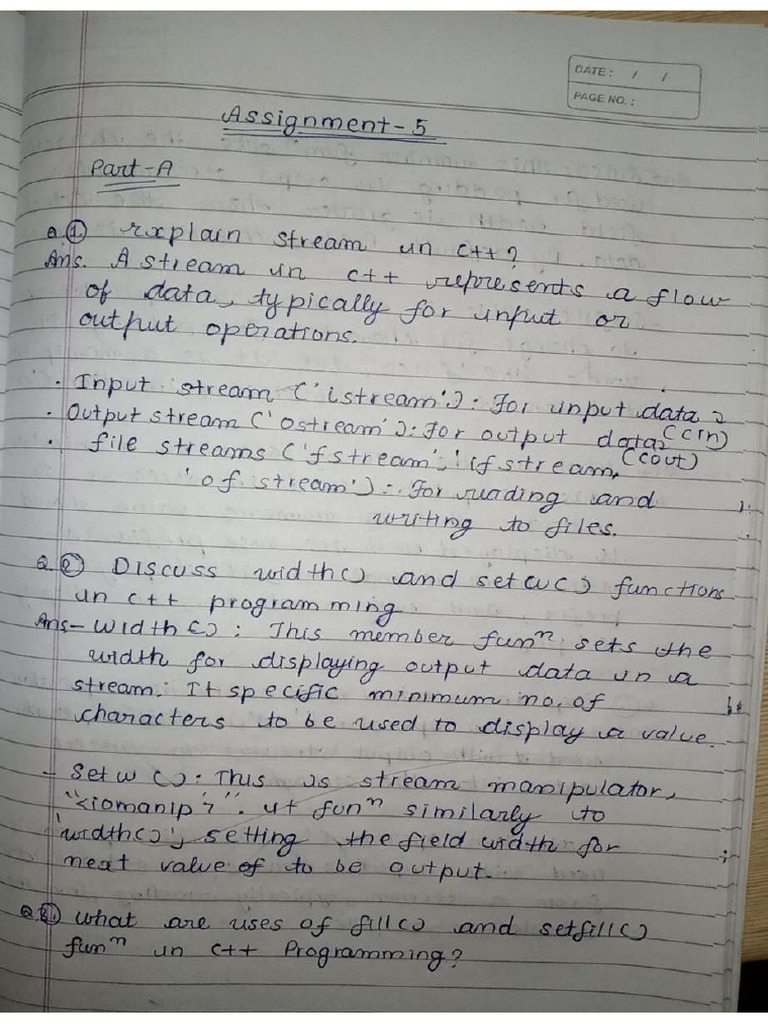 DATE: / /
PAGE NO.:
Assignment-5
Part-A
Q.① Explain stream in C++?
Ans. A stream in C++ represents a flow
of data, typically for input or
output operations.
. Input stream ('istream'): For input data
(cin)
. Output stream ('ostream'): For output data
(cout)
. file streams ('fstream', 'ifstream,
'ofstream'): For reading and
writing to files.
Q.② Discuss width() and setw() functions
in C++ programming
Ans- width(): This member funⁿ sets the
width for displaying output data in a
stream. It specific minimum no. of
characters to be used to display a value.
- Setw(): This is stream manipulator,
"<iomanip>". it funⁿ similarly to
'width()', setting the field width for
next value of to be output.
What are uses of fill() and setfill()
funⁿ in C++ Programming?